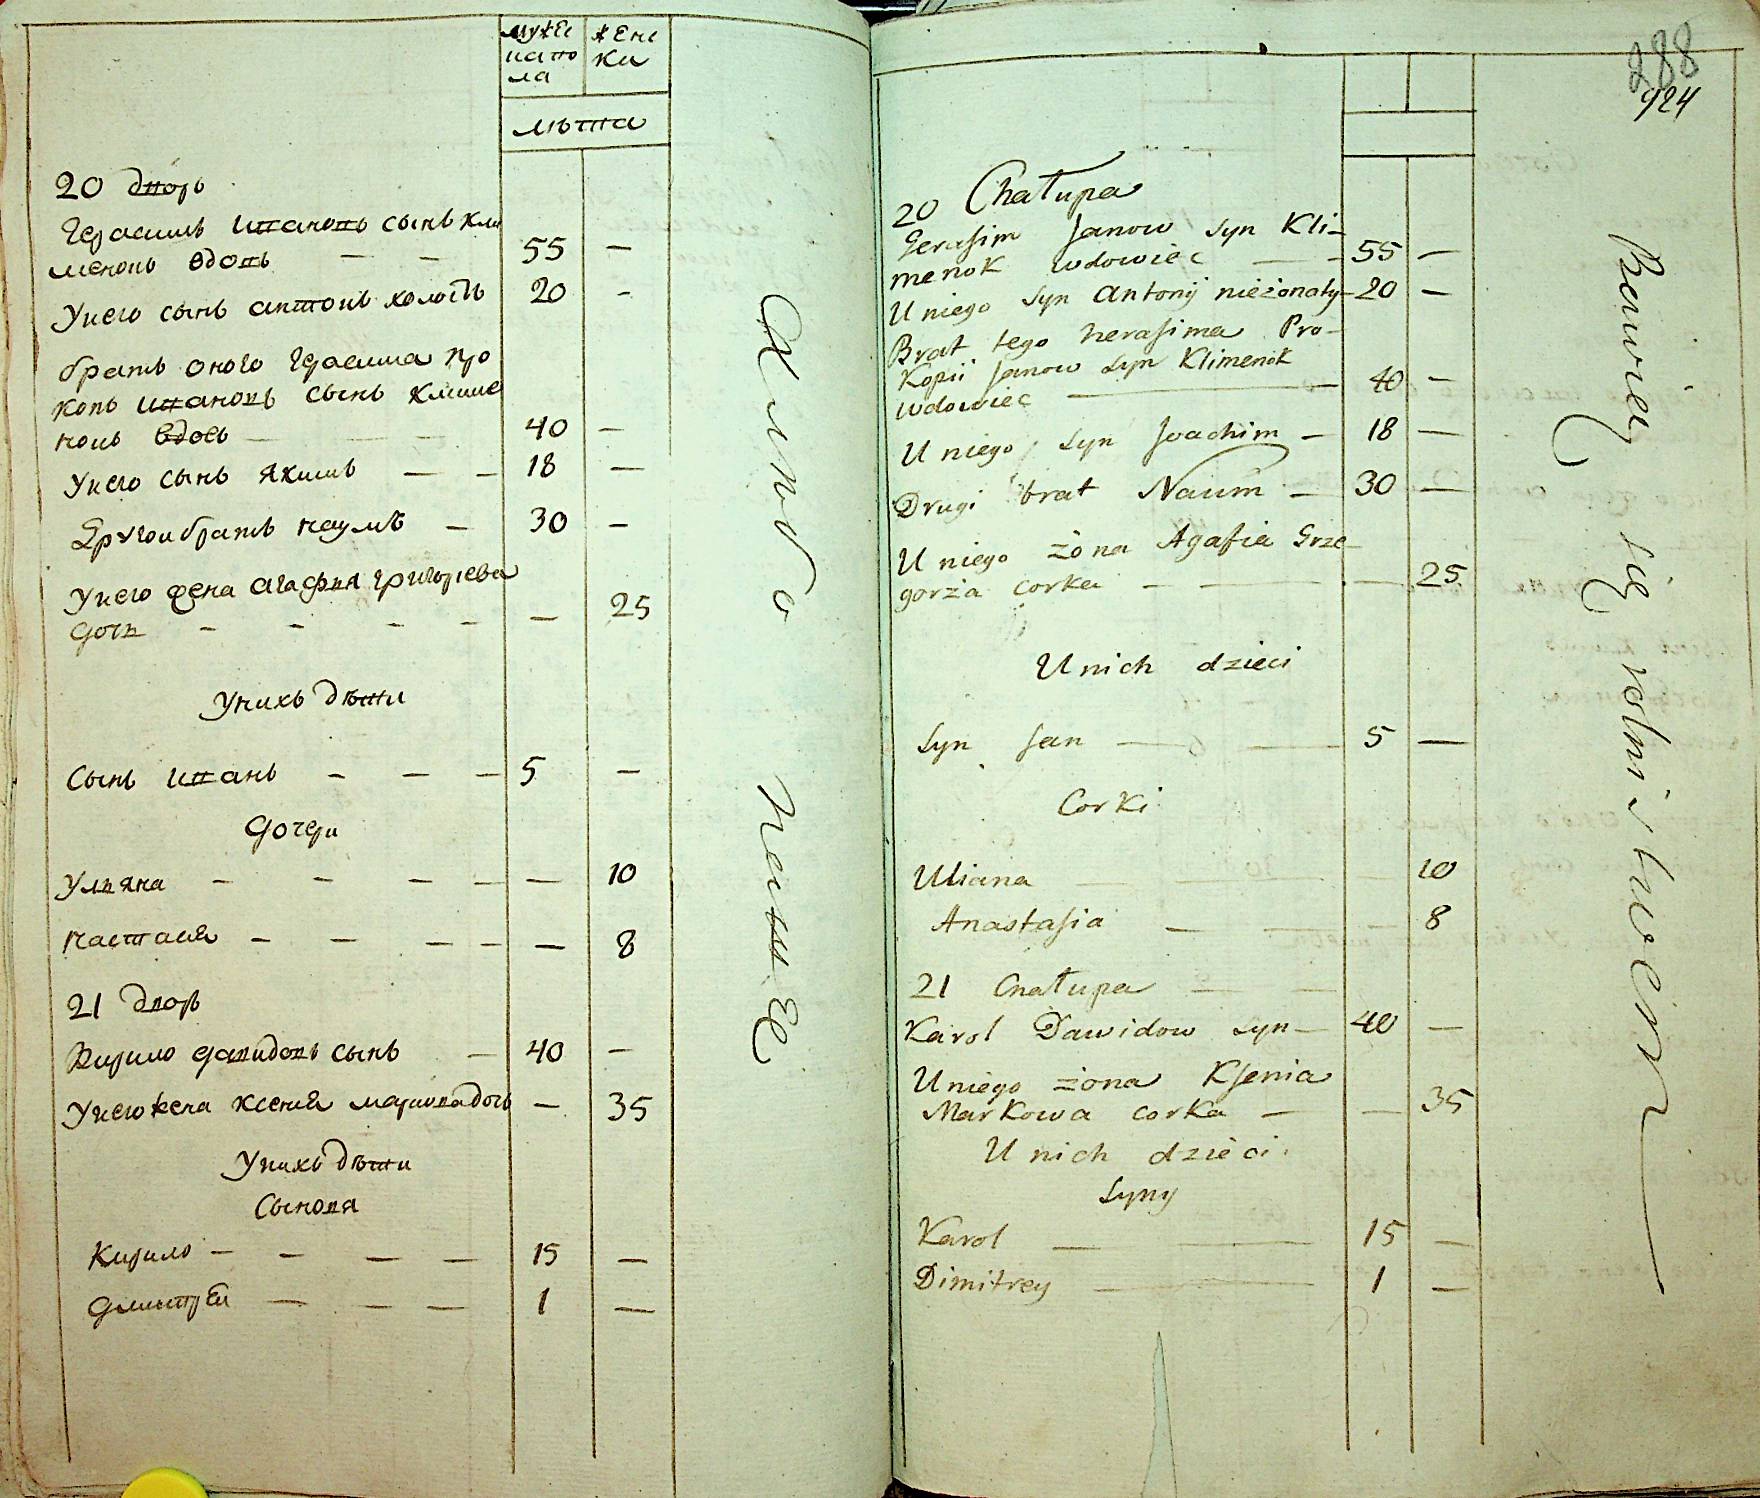 мужеска пола
женска
лѣта
20 дворъ
Герасимъ Ивановъ сынъ Кли
меновъ вдовъ — — 55 —
Унего сынъ Антонъ холостъ 20 —
братъ оного Герасима Про
копъ Ивановъ сынъ Климе
новъ вдовъ — — — 40 —
Унего сынъ Якимъ — — 18 —
Другои братъ Наумъ — 30 —
Унего жена Агафия Григорева
дочь — — — — — 25
Унихъ дѣти
Сынъ Иванъ — — — 5 —
Дочери
Ульяна — — — — — 10
Настасия — — — — — 8
21 дворъ
Кирило Давидовъ сынъ — 40 —
Унего жена Ксения Маркова дочь — 35
Унихъ дѣти
Сыновя
Кирило — — — — 15 —
Дмитреи — — — 1 —
288
924
20 Chałupa
Gerasim Janow syn Kli-
menok wdowiec — — 55 —
U niego syn Antonij nieżonaty — 20 —
Brat tego Herasima Pro-
kopii Janow syn Klimenok
wdowiec — 40 —
U niego syn Joachim — 18 —
Drugi brat Naum — 30 —
U niego żona Agafia Grze
gorza corka — — — 25
U nich dzieci
Syn Jan — — 5 —
Corki
Uliana — — 10
Anastasia — — — 8
21 Chałupa — —
Karol Dawidow syn — 40 —
U niego żona Ksenia
Markowa corka — — 35
U nich dzieci
Syny
Karol — — 15 —
Dimitrey — — 1 —
Bawięcy się rolnictwem